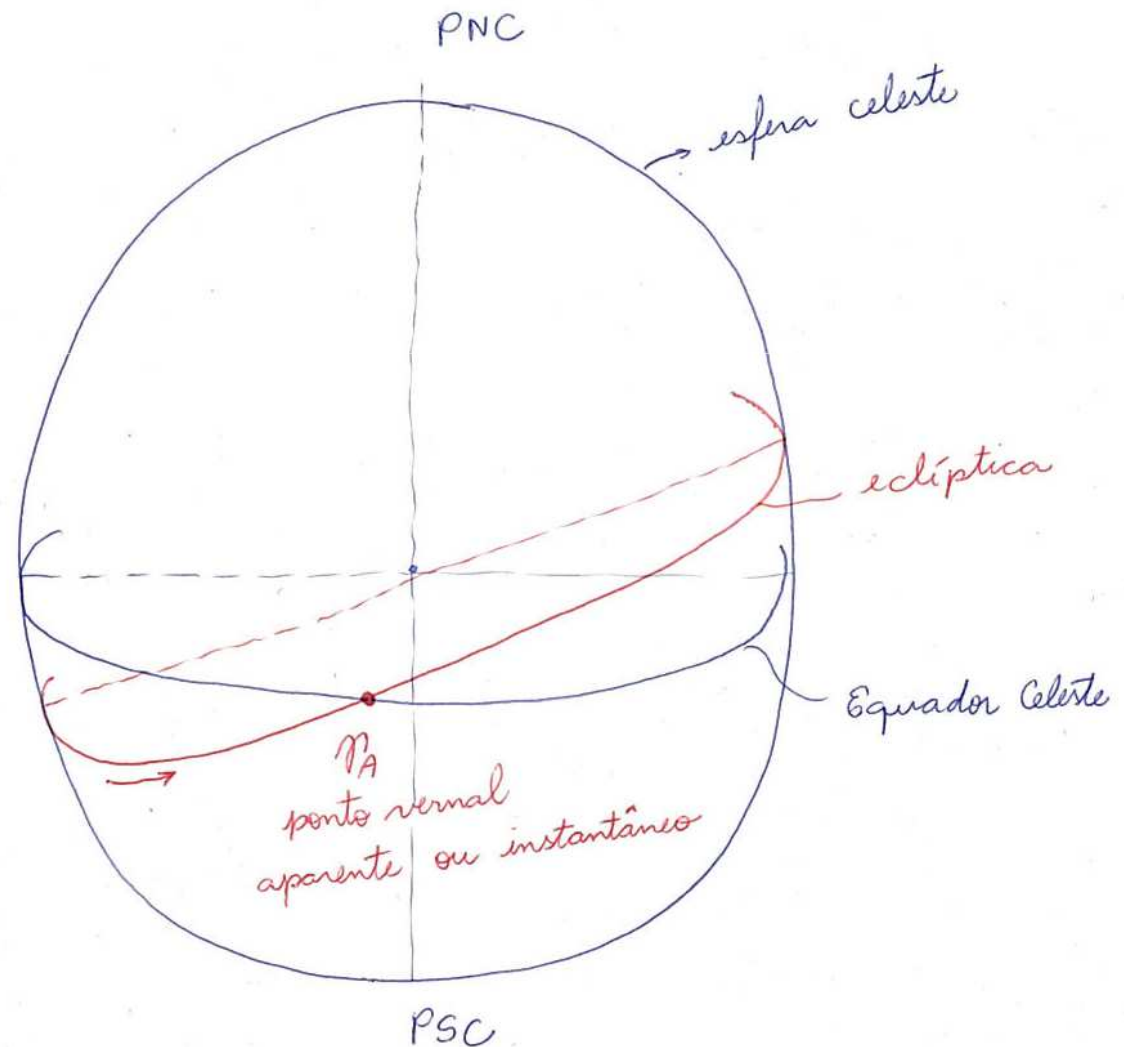 PNC
esfera celeste
eclíptica
Equador Celeste
♈A
ponto vernal
aparente ou instantâneo
PSC